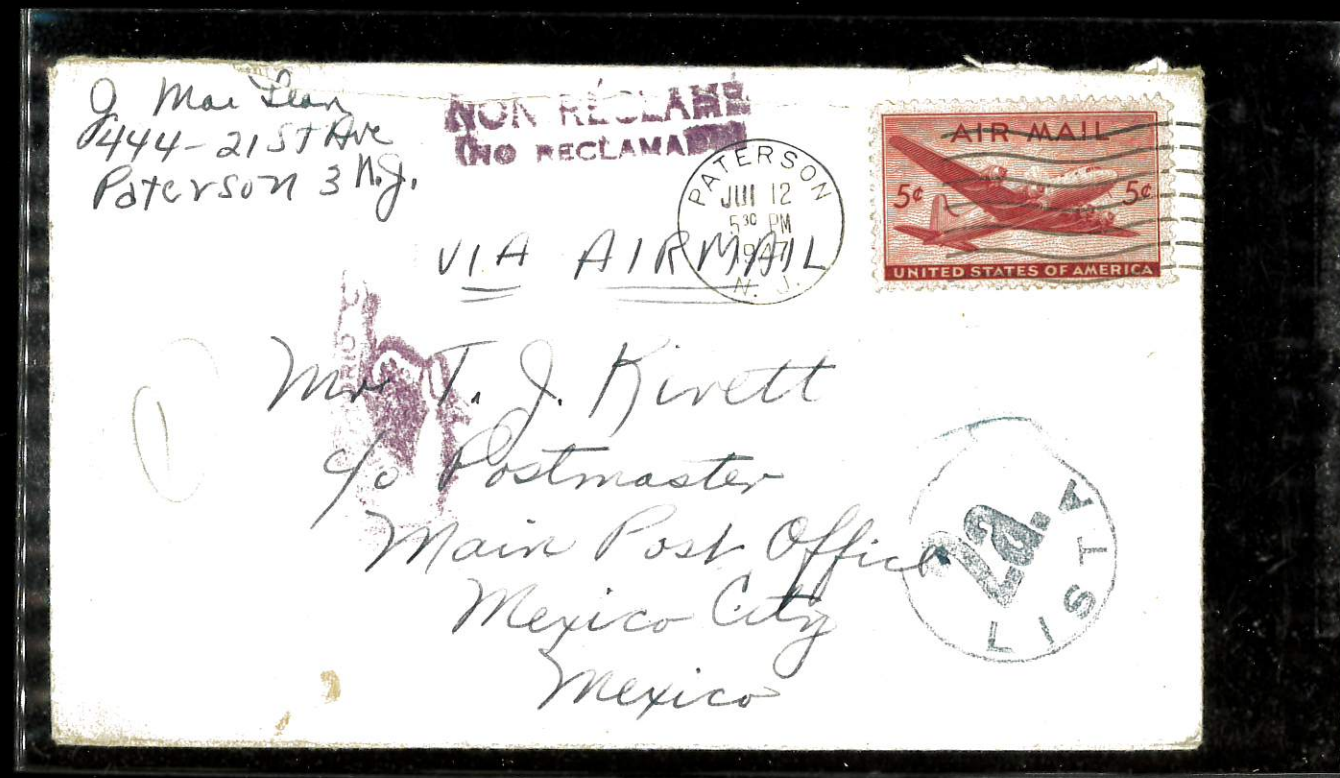 J. Mac Lean
444-21st Ave
Paterson 3 N.J.
NON RÉCLAMÉ
(NO RECLAMADO)
PATERSON
JUL 12
5 30 PM
1947
N. J.
AIR MAIL
5¢ 5¢
UNITED STATES OF AMERICA
VIA AIRMAIL
Mr. T. J. Kivett
c/o Postmaster
Main Post Office
Mexico City
Mexico
2a.
LISTA